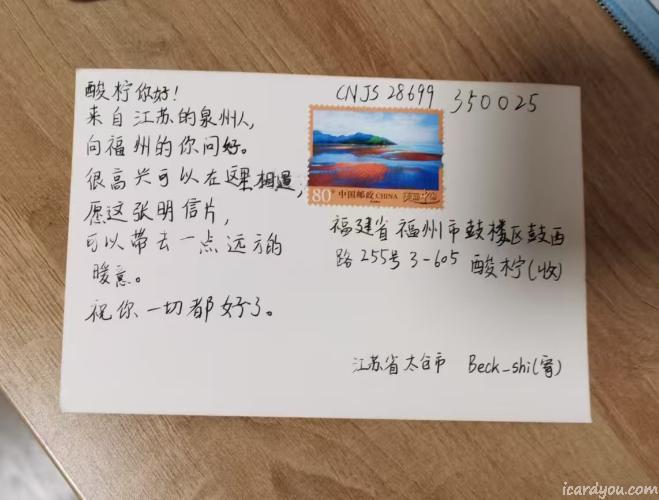 酸柠你好!
来自江苏的泉州人,
向福州的你问好。
很高兴可以在这里相遇;
愿这张明信片,
可以带去一点远方的
暖意。
祝你一切都好了。
CNJS 28699
350025
80分
中国邮政 CHINA
福建省福州市鼓楼区鼓西
路255号3-605 酸柠(收)
江苏省太仓市 Beck_shi(寄)
icardyou.com